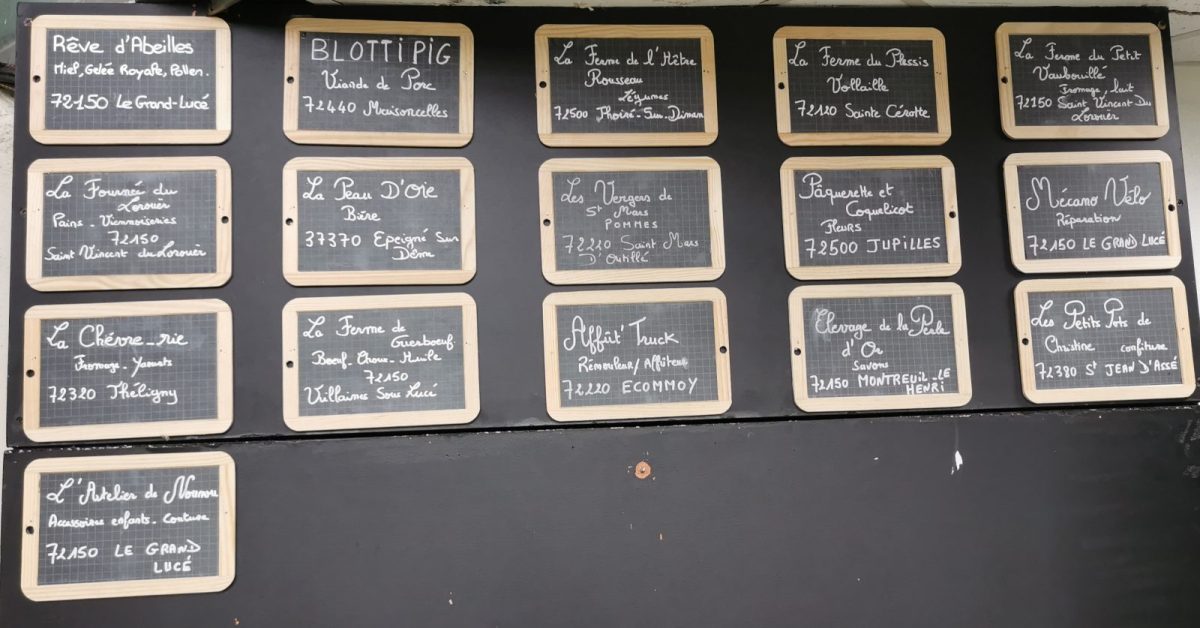 Rêve d'Abeilles
Miel, Gelée Royale, Pollen.
72150 Le Grand-Lucé
BLOTTIPIG
Viande de Porc
72440 Maisoncelles
La Ferme de l'Hêtre
Rousseau
Légumes
72500 Thoiré-Sur-Dinan
La Ferme du Plessis
Vollaille
72120 Sainte Cérotte
La Ferme du Petit
Vaubouillé
Fromage, lait
72150 Saint Vincent Du
Lorouër
La Fournée du
Lorouër
Pains - Viennoiseries
72150
Saint Vincent du Lorouër
La Peau D'Oie
Bière
37370 Epeigné Sur
Dême
Les Vergers de
St Mars
POMMES
72220 Saint Mars
D'Outillé
Pâquerette et
Coquelicot
Fleurs
72500 JUPILLES
Mécano Vélo
Réparation
72150 LE GRAND LUCÉ
La Chèvre_rie
Fromage - Yaourts
72320 Théligny
La Ferme de
Guerboeuf
Boeuf - Choux - Huile
72150
Villaines Sous Lucé
Affût' Truck
Rémouleur/Affûteur
72220 ECOMMOY
Elevage de la Perle
d'Or
Savons
72150 MONTREUIL-LE
HENRI
Les Petits Pots de
Christine confiture
72380 St JEAN D'ASSÉ
L'Atelier de Nounou
Accessoires enfants - Couture
72150 LE GRAND
LUCÉ